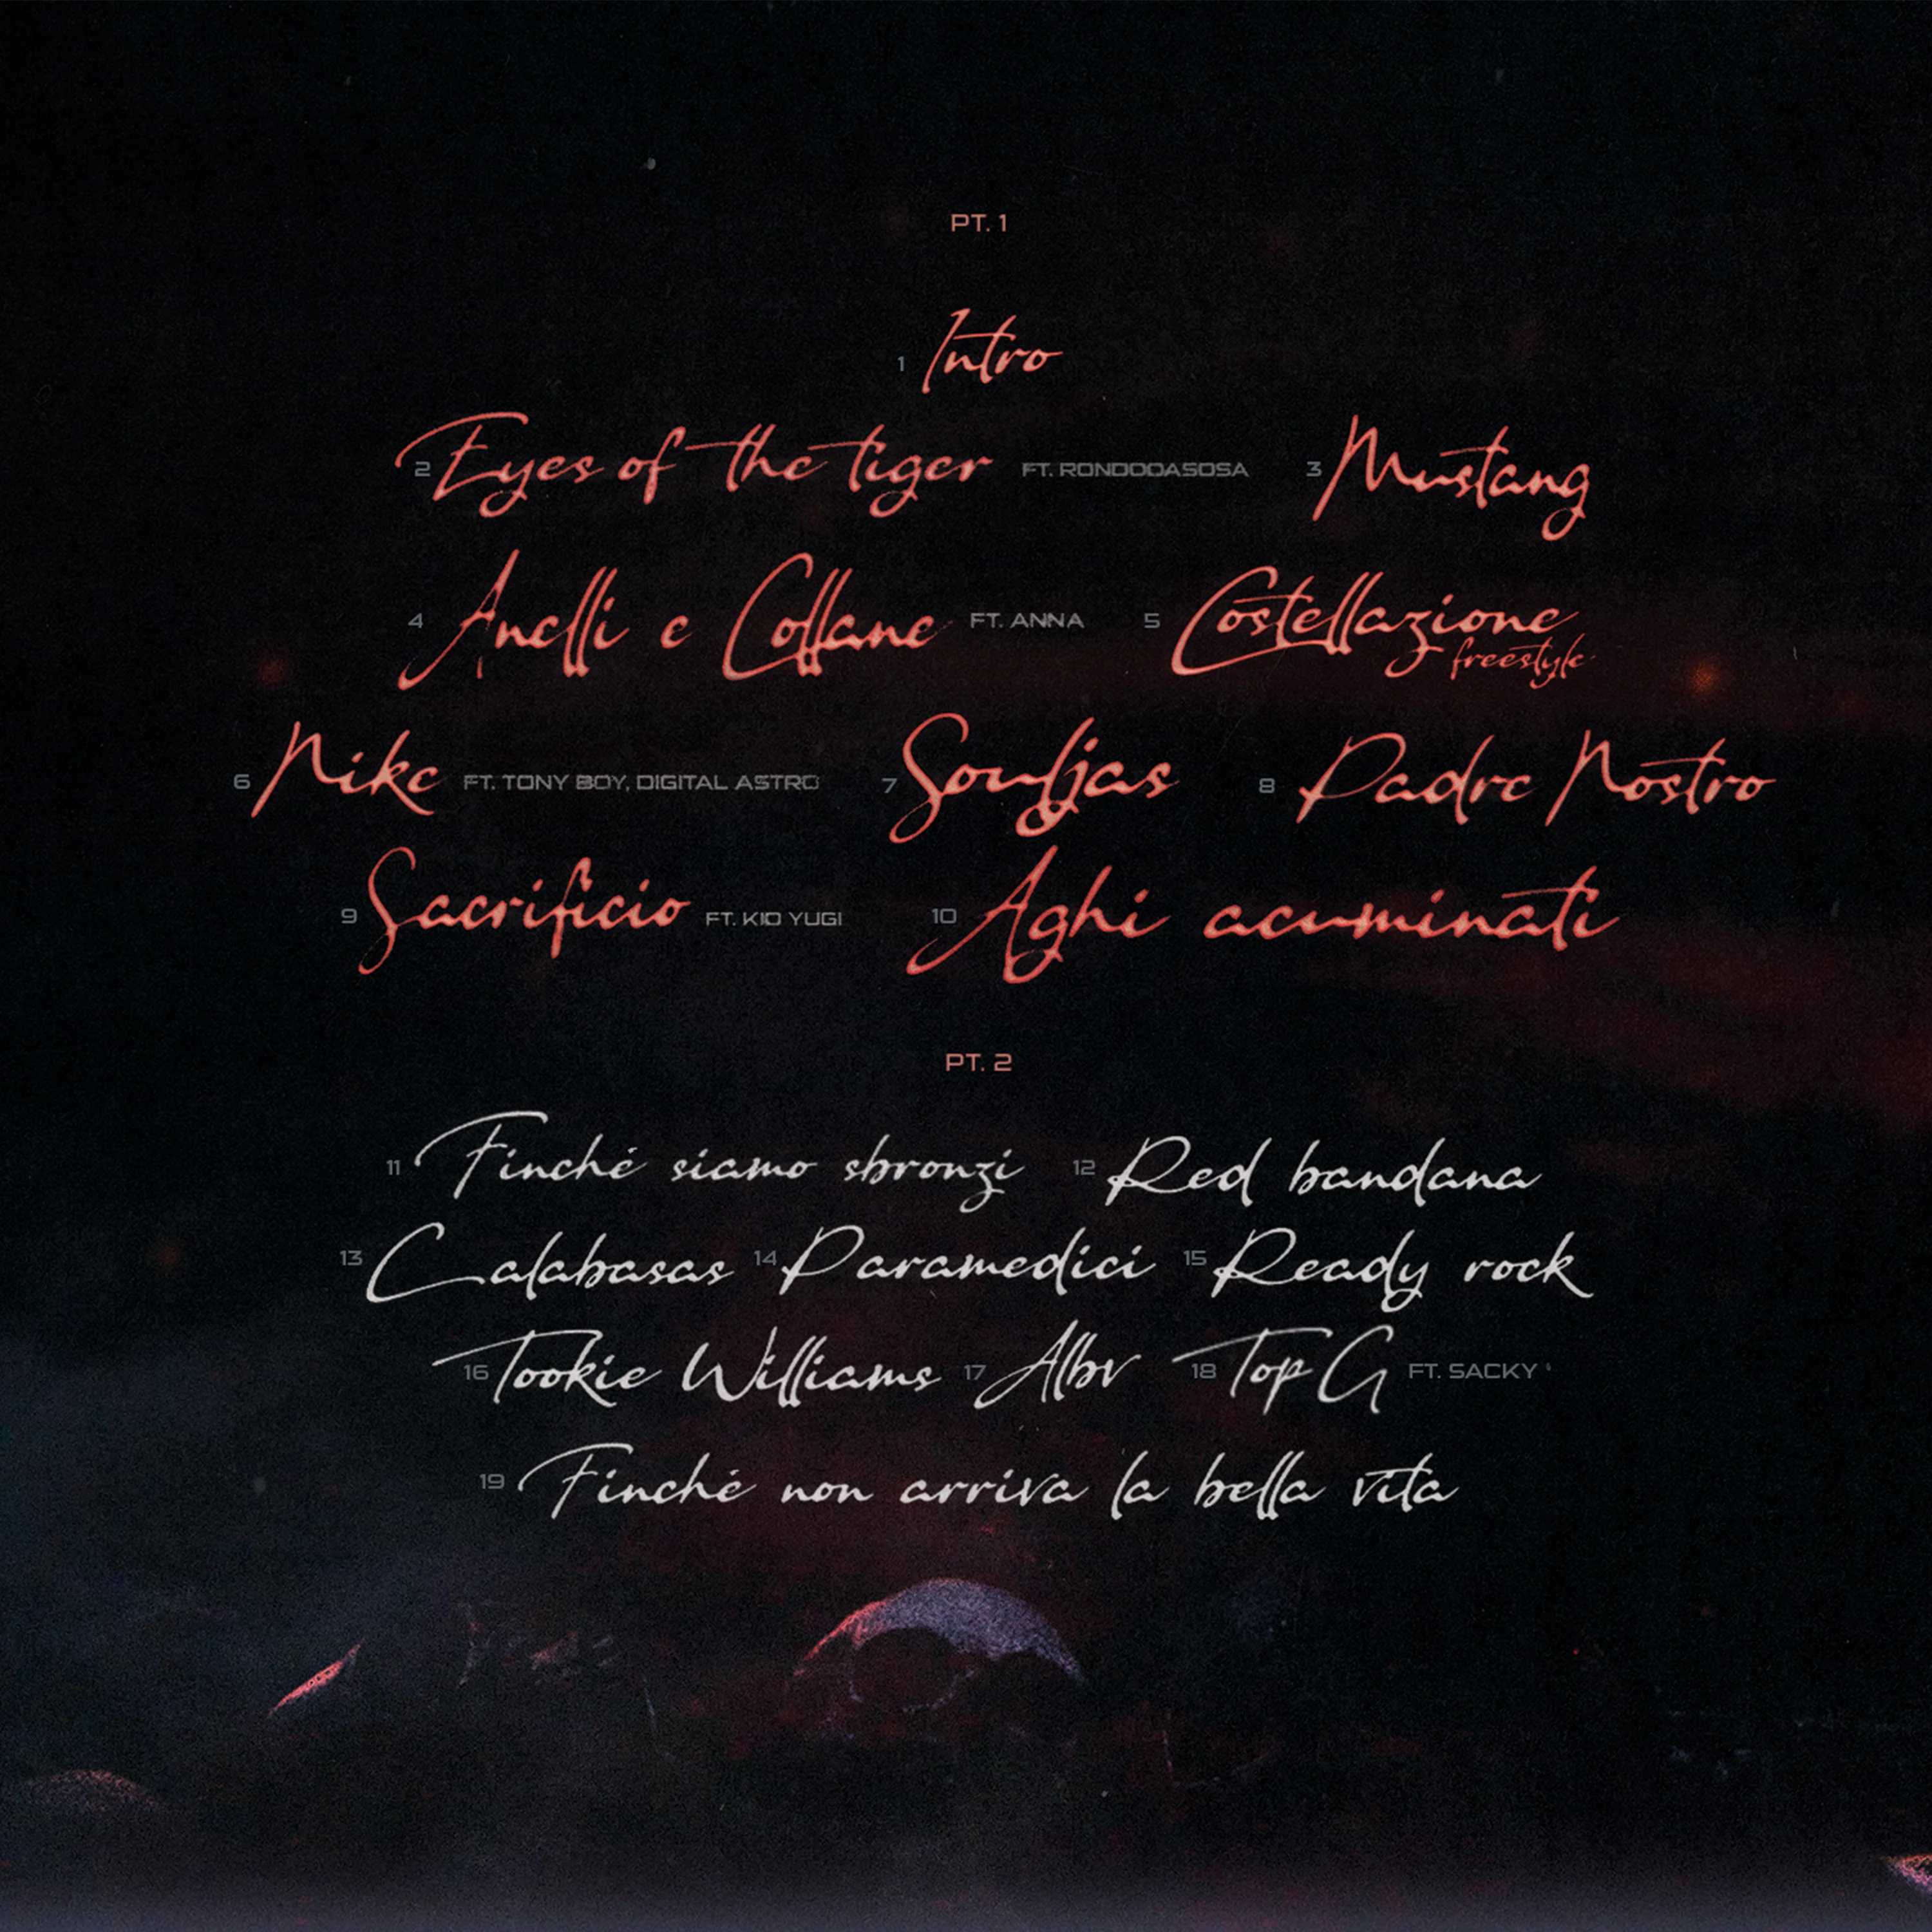 PT. 1
1 Intro
2 Eyes of the tiger FT. RONDODASOSA 3 Mustang
4 Anelli e Collane FT. ANNA 5 Costellazione freestyle
6 Nike FT. TONY BOY, DIGITAL ASTRO 7 Souljas 8 Padre Nostro
9 Sacrificio FT. KID YUGI 10 Aghi acuminati
PT. 2
11 Finché siamo sbronzi 12 Red bandana
13 Calabasas 14 Paramedici 15 Ready rock
16 Tookie Williams 17 Albv 18 Top G FT. SACKY
19 Finché non arriva la bella vita